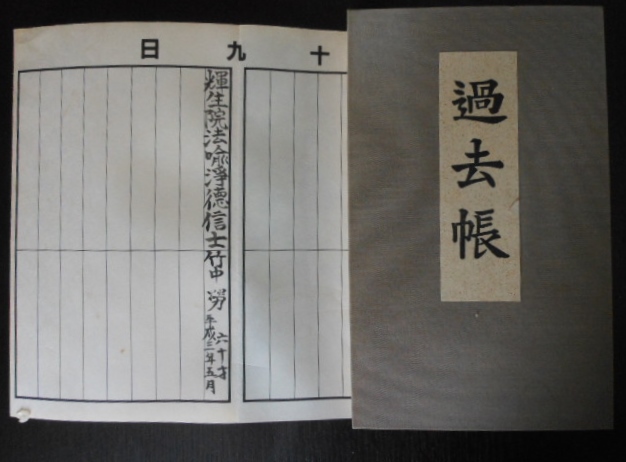 過去帳
十九日
輝生院法喩淨德信士竹中 勞 六十才
平成三年五月